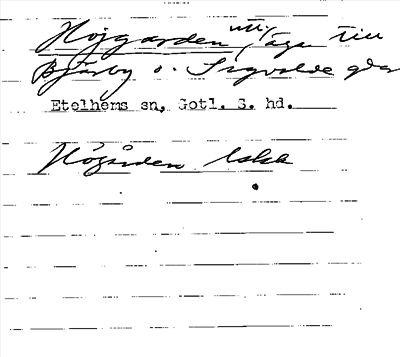 Höjgarden utj, äga till
Bjärby o. Sigvalde gdr
Etelhems sn, Gotl. S. hd.
Högården